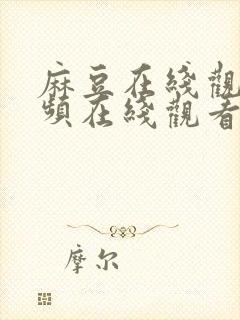 麻豆在綫觀
頻在綫觀看
摩尔